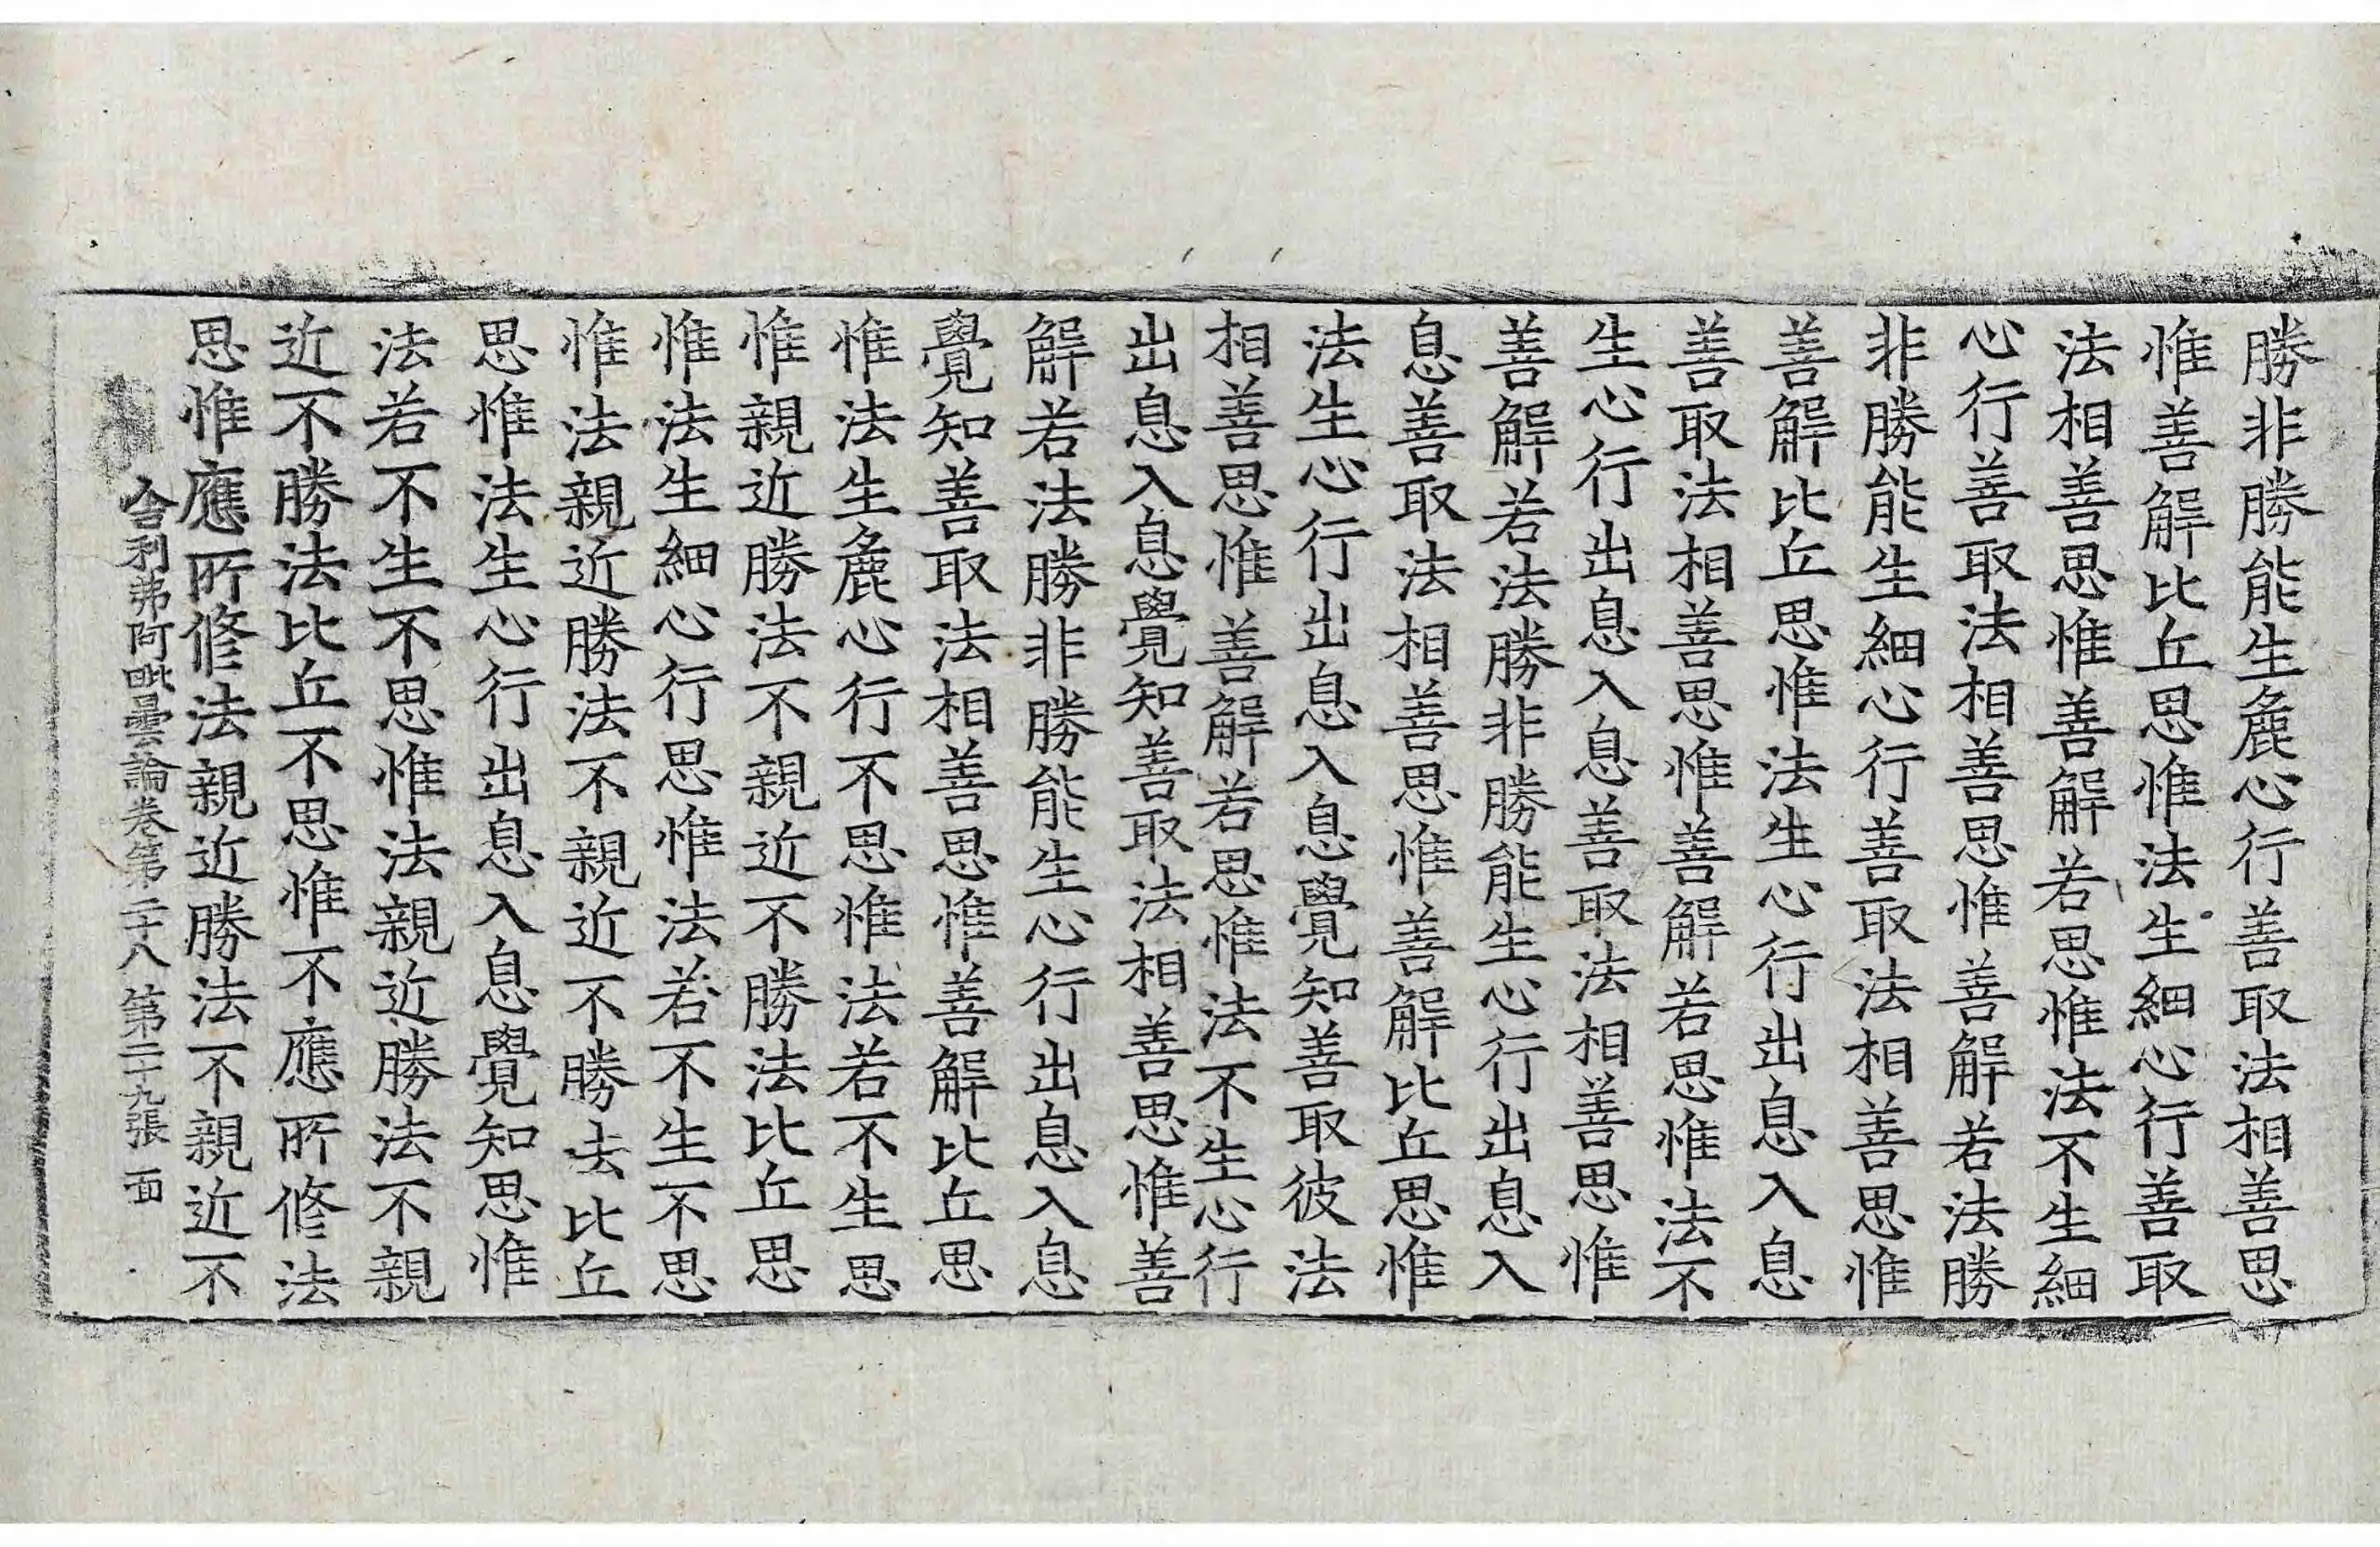 勝非勝能生麁心行善取法相善思
惟善解比丘思惟法生細心行善取
法相善思惟善解若思惟法不生細
心行善取法相善思惟善解若法勝
非勝能生細心行善取法相善思惟
善解比丘思惟法生心行出息入息
善取法相善思惟善解若思惟法不
生心行出息入息善取法相善思惟
善解若法勝非勝能生心行出息入
息善取法相善思惟善解比丘思惟
法生心行出息入息覺知善取彼法
相善思惟善解若思惟法不生心行
出息入息覺知善取法相善思惟善
解若法勝非勝能生心行出息入息
覺知善取法相善思惟善解比丘思
惟法生麁心行不思惟法若不生思
惟親近勝法不親近不勝法比丘思
惟法生細心行思惟法若不生不思
惟法親近勝法不親近不勝法比丘
思惟法生心行出息入息覺知思惟
法若不生不思惟法親近勝法不親
近不勝法比丘不思惟不應所修法
思惟應所修法親近勝法不親近不
舍利弗阿毗曇論卷第二十八 第二十九張 面